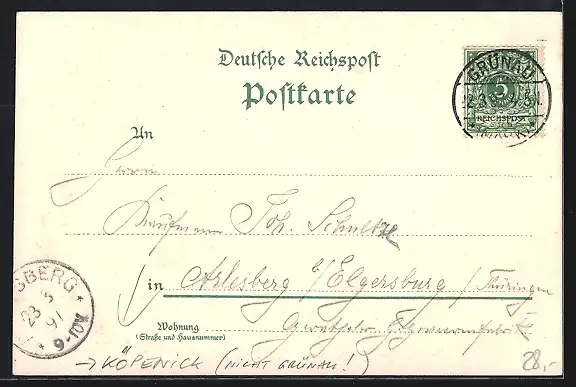 Deutsche Reichspost
Postkarte
GRÜNAU
5
REICHSPOST
(MARK)
An
Herrn
Kaufmann Joh. Schultze
in Arlesberg b/Elgersburg / Thüringen
SBERG
23 3
91
9-10V
Wohnung
(Straße und Hausnummer)
→ KÖPENICK (NICHT GRÜNAU!)
28,-